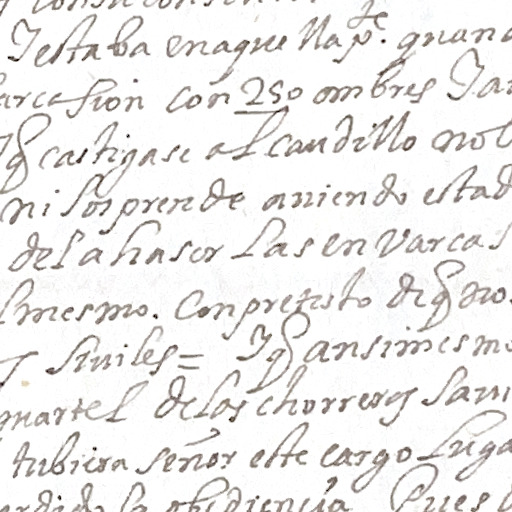 Jestaba enaquella p.te quand
arcasion con 250 ombres Jau
Jq castigase al caudillo no l
ni sosprende auiendo estad
de la haser las en varcas
l mesmo. Con pretesto de q no
siuiles = Jq ansimesmo
martel de los chorreros saui
tubiera señor este cargo luga
la obidiencia Pues